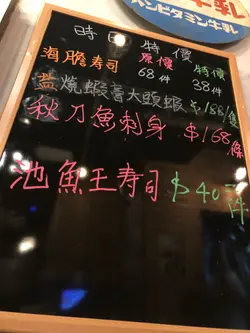 ンビタミン牛乳
時日特價
原價 特價
海膽壽司 68件 38件
盐燒蝦膏大頭蝦 $188/隻
秋刀魚刺身 $168條
池魚王寿司 $40一件